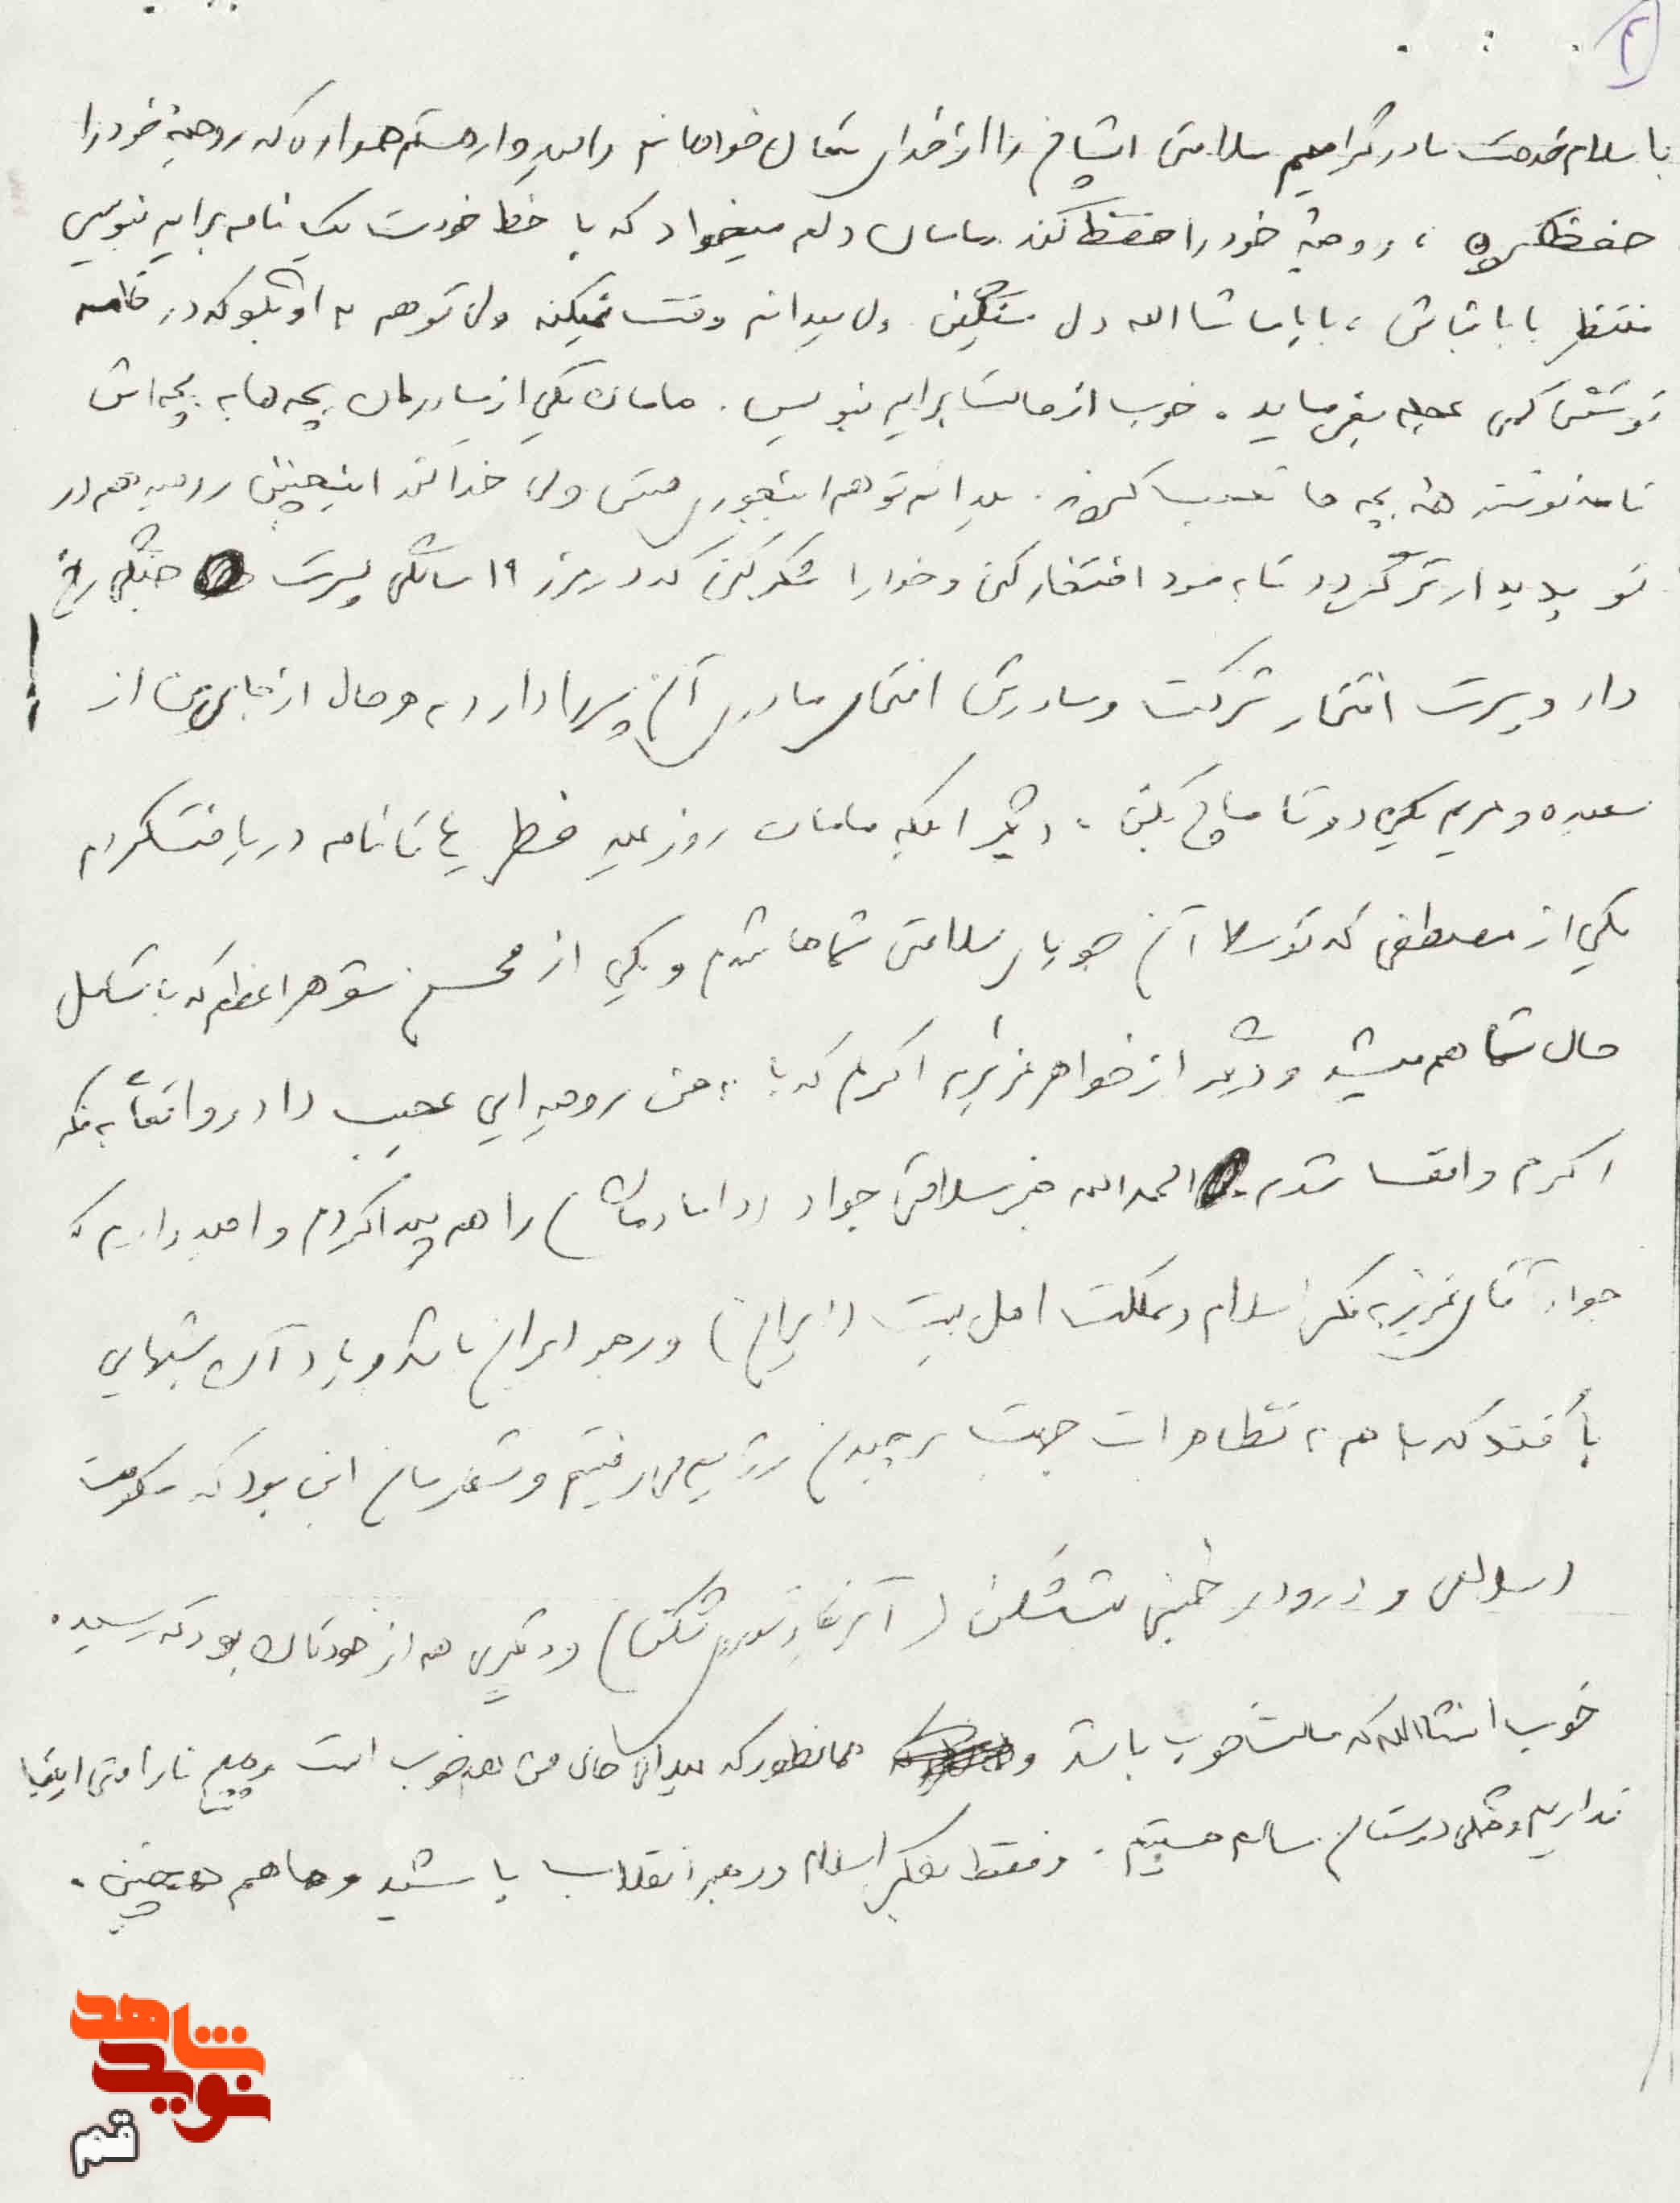 ۲
با سلام خدمت مادر گرامیم سلامتی ایشان را از خدای متعال خواهانم و امیدوار هستم همواره که روحیهٔ خود را
حفظ کرده، روحیهٔ خود را حفظ کند مامان دلم میخواد که با خط خودت یک نامه برایم بنویسی
منتظر بابا نباش، بابا ماشاالله دل سنگین ولی میدانم وقت نمیکنه ولی تو هم به او بگو که در نامه
نوشتن کمی عجله بفرماید. خوب از حالت برایم بنویس. مامان یکی از مادرهای بچه ها به بچه اش
نامه نوشته همهٔ بچه ها تعجب کردند. میدانم تو هم اینجوری هستی ولی خدا کند اینچنین روحیه هم در
تو پدیدارتر گردد تا به خود افتخار کنی و خدا را شکر کنی که در مرز ۱۹ سالگی پسرت جنگی رخ
داد و پسرت افتخار شرکت و مادرش افتخار مادری آن پسر را دارد به هر حال از جانب من از
سعیده و مریم یکی دو تا ماچ بکن، دیگر اینکه مامان روز عید فطر ۴ تا نامه دریافت کردم
یکی از مصطفی که توسط آن جویای سلامتی شماها شدم و یکی از محسن شوهر اعظم که با شامل
حال شما هم میشد و دیگر از خواهر عزیزم اکرم که به من روحیه ایی عجیب داد و واقعاً به فکر
اکرم واقف شدم الحمدالله خبر سلامتی جواد (دامادمان) را هم پیدا کردم و امیدوارم که
جواد آقای عزیز به فکر اسلام و مملکت اهل بیت (ایران) و رهبر ایران باشد و یاد آن شبهایی
بأفتد که با هم به تظاهرات جهت برچیدن رژیم می رفتیم و شعارمان این بود که حکومت
اسلامی و درود بر خمینی بت شکن ( ) و دیگری هم از خودتان بود که رسید.
خوب انشاالله که حالت خوب باشد و همانطور که میدانی حال من هم خوب است و هیچ ناراحتی اینجا
نداریم و خیلی درستان سالم هستیم. و فقط بفکر اسلام و رهبر انقلاب باشید و ما هم همچنین.
شاهد
نوید
قم